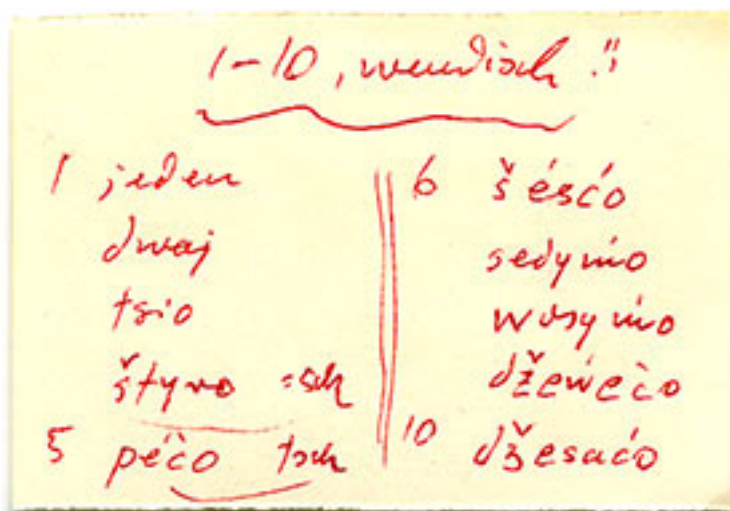 1-10, wendisch !!
1 jeden
dwaj
tsio
štyro =sch
5 pěčo tsch
6 šěsćo
sedymo
wosymo
dźewećo
10 dźesaćo